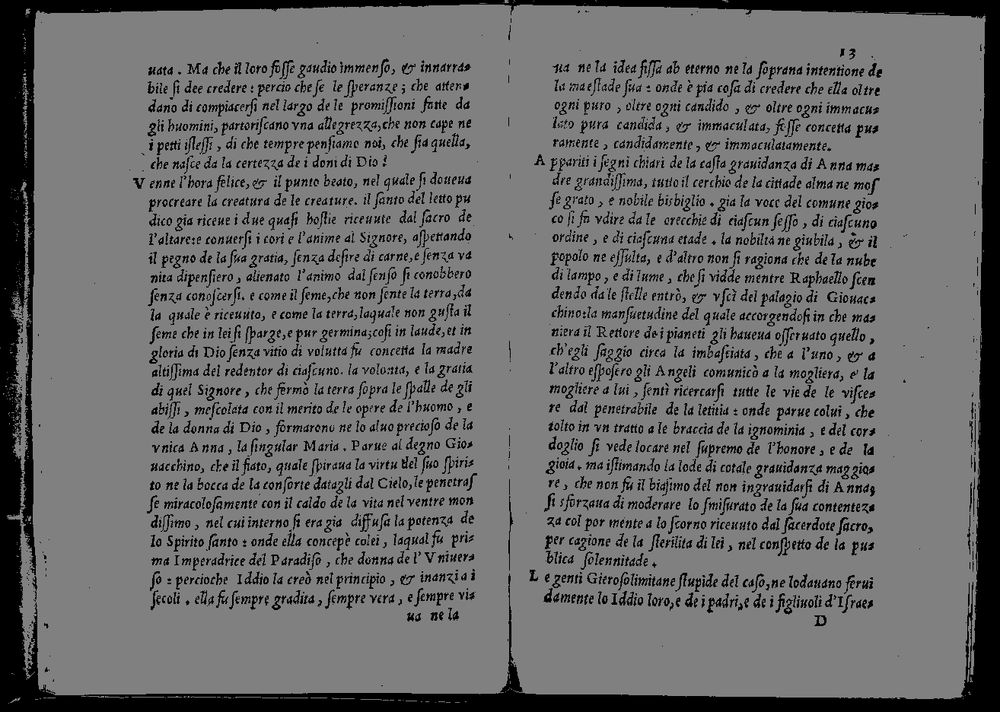 uata . Ma che il loro fosse gaudio immenso, & innarra=
bile si dee credere : percio che se le speranze ; che atten=
dano di compiacersi nel largo de le promissioni fatte da
gli huomini, partoriscano vna allegrezza, che non cape ne
i petti istessi , di che tempre pensiamo noi, che sia quella,
che nasce da la certezza de i doni di Dio ?
Venne l'hora felice, & il punto beato, nel quale si doueua
procreare la creatura de le creature. il santo del letto pu
dico gia riceue i due quasi hostie riceuute dal sacro de
l'altare: e conuersi i cori e l'anime al Signore, aspettando
il pegno de la sua gratia, senza desire di carne, e senza va
nita di pensiero , alienato l'animo dal senso si conobbero
senza conoscersi. e come il seme, che non sente la terra, da
la quale è riceuuto, e come la terra, laquale non gusta il
seme che in lei si sparge, e pur germina; cosi in laude, et in
gloria di Dio senza vitio di volutta fu concetta la madre
altissima del redentor di ciascuno. la volonta, e la gratia
di quel Signore , che fermò la terra sopra le spalle de gli
abissi , mescolata con il merito de le opere de l'huomo , e
de la donna di Dio , formarono ne lo aluo precioso de la
vnica Anna , la singular Maria . Parue al degno Gio=
uacchino, che il fiato, quale spiraua la virtu del suo spiri=
to ne la bocca de la consorte datagli dal Cielo, le penetras
se miracolosamente con il caldo de la vita nel ventre mon
dissimo , nel cui interno si era gia diffusa la potenza de
lo Spirito santo : onde ella concepè colei , laqual fu pri=
ma Imperadrice del Paradiso , che donna de l'Vniuer=
so : percioche Iddio la creò nel principio , & inanzi a i
secoli . ella fu sempre gradita , sempre vera , e sempre vi=
ua ne la
13
ua ne la idea fissa ab eterno ne la soprana intentione de
la maestade sua : onde è pia cosa di credere che ella oltre
ogni puro , oltre ogni candido , & oltre ogni immacu=
lato pura candida , & immaculata, fosse concetta pu=
ramente , candidamente , & immaculatamente.
Appariti i segni chiari de la casta grauidanza di Anna ma=
dre grandissima, tutto il cerchio de la cittade alma ne mos
se grato , e nobile bisbiglio . gia la voce del comune gio=
co si fa vdire da le orecchie di ciascun sesso , di ciascuno
ordine , e di ciascuna etade . la nobilta ne giubila , & il
popolo ne essulta, e d'altro non si ragiona che de la nube
di lampo , e di lume , che si vidde mentre Raphaello scen
dendo da le stelle entrò, & vscì del palagio di Giouac=
chino: la mansuetudine del quale accorgendosi in che ma=
niera il Rettore dei pianeti gli haueua osseruato quello ,
ch'egli saggio circa la imbasciata, che a l'uno , & a
l'altro esposero gli Angeli comunicò a la mogliera, e la
mogliere a lui , sentì ricercarsi tutte le vie de le visce=
re dal penetrabile de la letitia : onde parue colui , che
tolto in vn tratto a le braccia de la ignominia , e del cor=
doglio si vede locare nel supremo de l'honore , e de la
gioia . ma istimando la lode di cotale grauidanza maggio=
re , che non fu il biasimo del non ingrauidarsi di Anna;
si sforzaua di moderare lo smisurato de la sua contentez=
za col por mente a lo scorno riceuuto dal sacerdote sacro,
per cagione de la sterilita di lei , nel conspetto de la pu=
blica solennitade .
Le genti Gierosolimitane stupide del caso, ne lodauano ferui
damente lo Iddio loro, e de i padri, e de i figliuoli d'Israe=
D